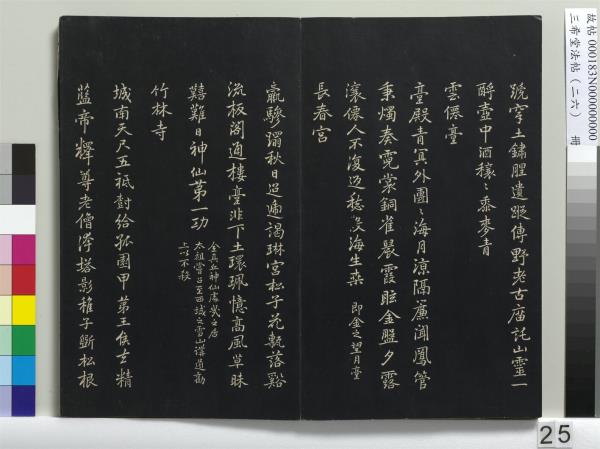 號穿土鏽腥遺蹤傳野老古廟託山靈一
酹壺中酒穟穟黍麥青
雲僊臺
臺殿青冥外團團海月涼隔簾聞鳳管
秉燭奏霓裳銅雀晨霞眩金盤夕露
瀼僊人不復返愁海生桑 即金之望月臺
長春宮
羸驂躡秋日迢遞謁琳宮松子花甎落谿
流板閣通樓臺非下土環珮憶高風草昧
艱難日神仙第一功 金真丘神仙處幾之居
太祖嘗召至西域之雪山講道勸
上以不殺
竹林寺
城南天尺五祗對給孤園甲第王侯去精
藍帝釋尊老僧浮塔影稚子斷松根
故帖 000183N000000000
三希堂法帖（二六） 冊
25